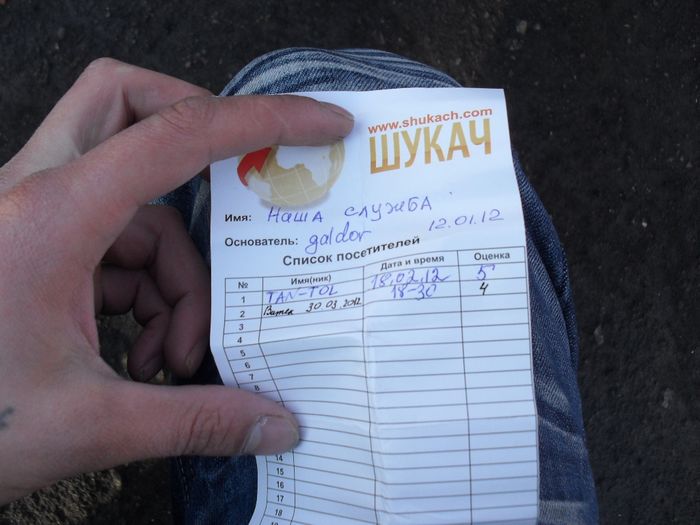 www.shukach.com
ШУКАЧ
Имя: Наша служба
Основатель: galdor 12.01.12
Список посетителей
№ Имя(ник) Дата и время Оценка
1 TAN-TOL 18.02.12 18-30 5
2 Витек 30.03.2012 4
3
4
5
6
7
8
14
15
16
17
18